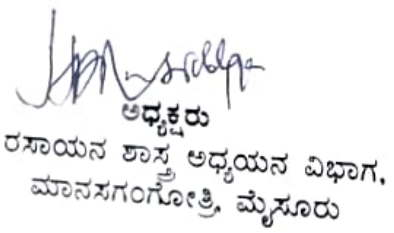 ಅಧ್ಯಕ್ಷರು
ರಸಾಯನ ಶಾಸ್ತ್ರ ಅಧ್ಯಯನ ವಿಭಾಗ,
ಮಾನಸಗಂಗೋತ್ರಿ, ಮೈಸೂರು